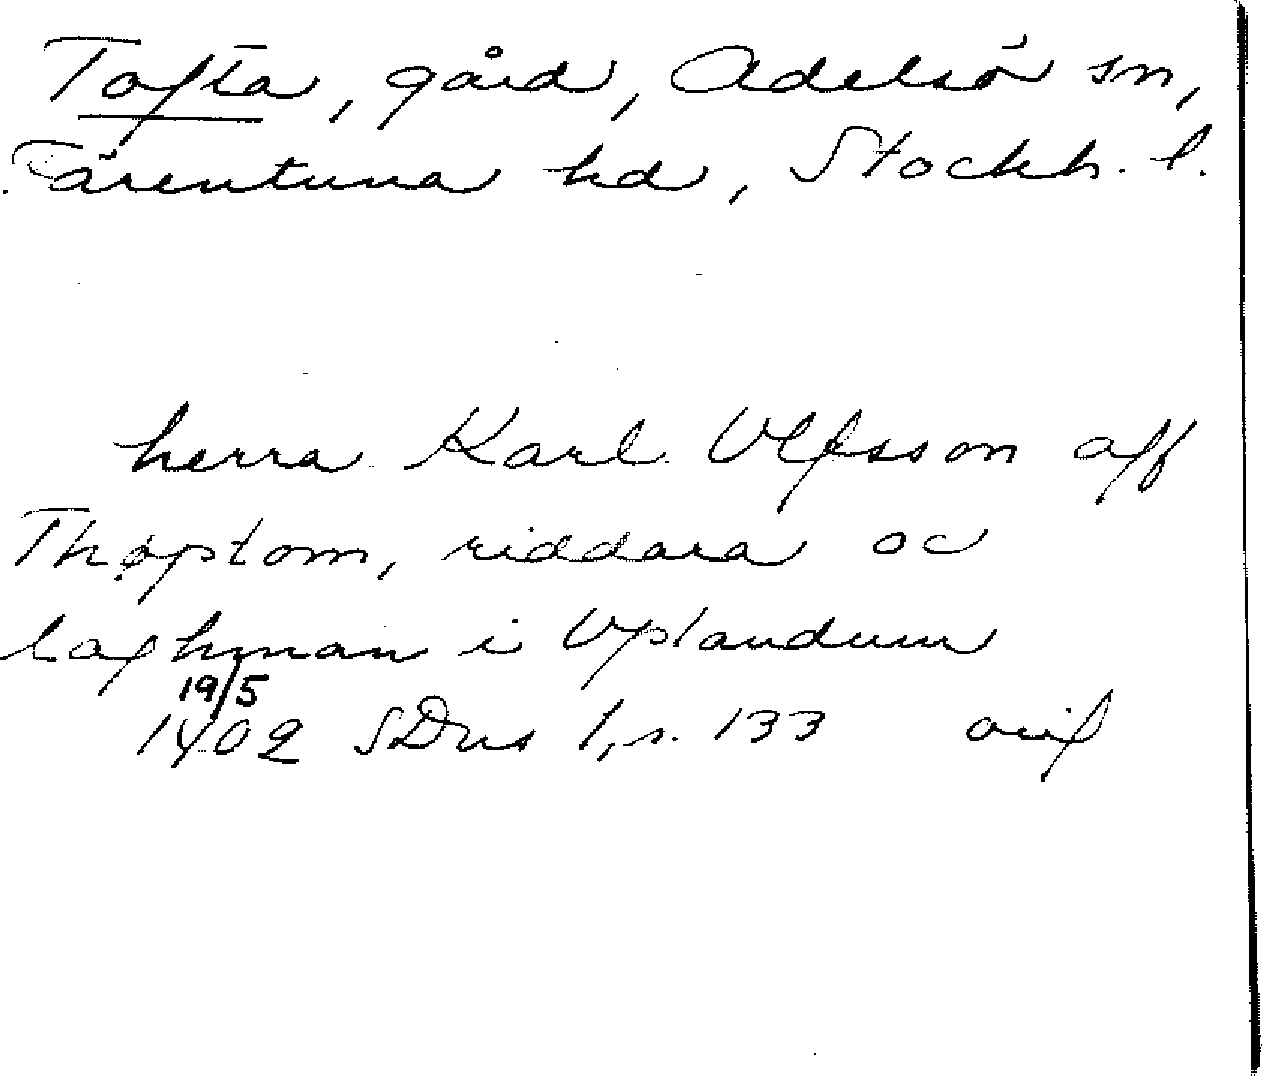 Tofta, gård, Adelsö sn,
Färentuna hd, Stockh. l.
herra Karl Vlfsson aff
Thoptom, riddara oc
laghman i Vplandum
19/5
1402 SDns 1, s. 133 orig